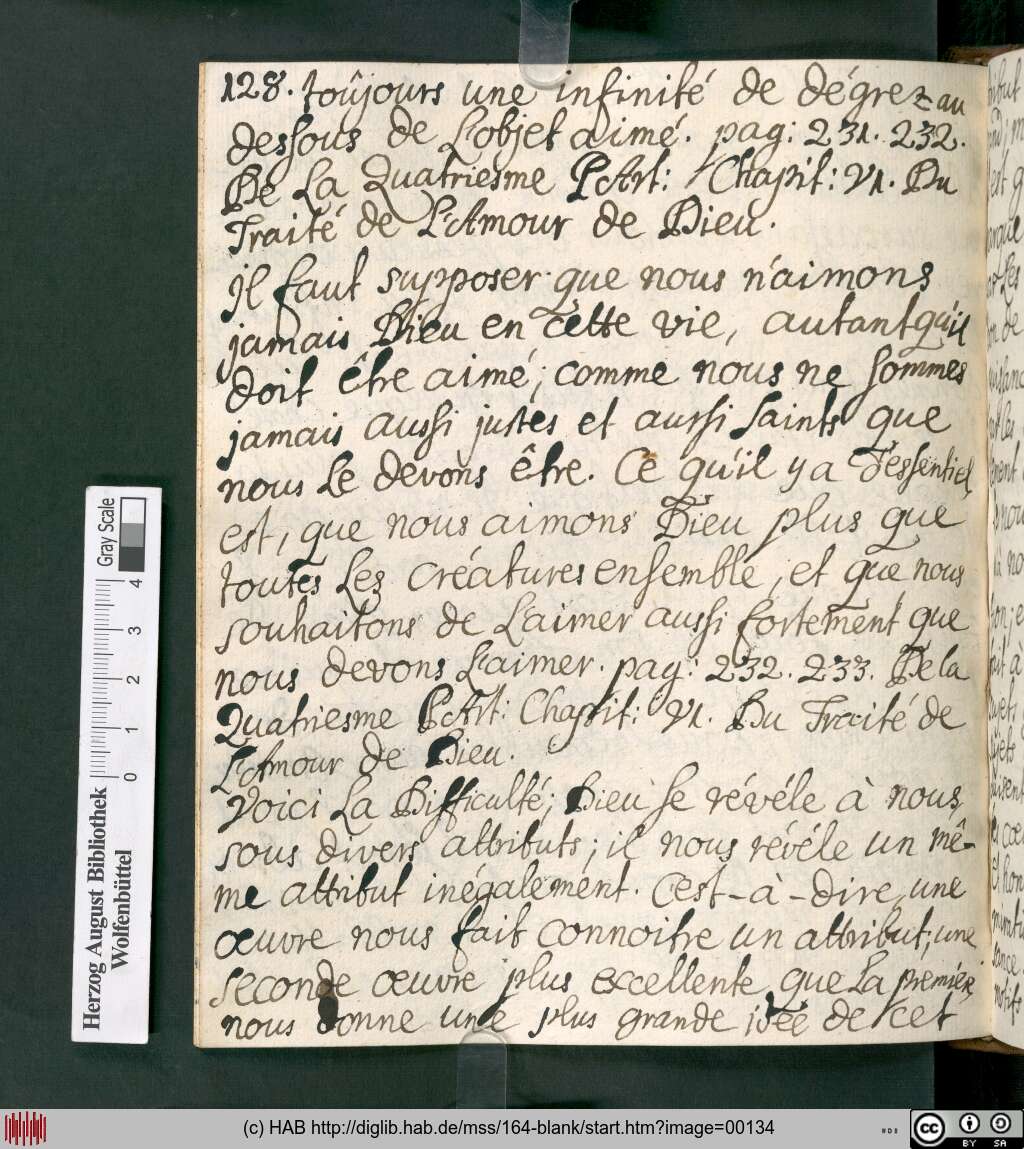 128. toûjours une infinité de dégrez au
dessous de L'objet aimé. pag: 231. 232.
De La Quatriesme PArt: Chapit: VI. Du
Traité de L'Amour de Dieu.
il faut supposer que nous n'aimons
jamais Dieu en cette vie, autant qu'il
doit être aimé; comme nous ne sommes
jamais aussi justes et aussi saints que
nous Le devons être. Ce qu'il y a d'essentiel
est, que nous aimons Dieu plus que
toutes Les créatures ensemble, et que nous
souhaitons de L'aimer aussi fortement que
nous devons L'aimer. pag: 232. 233. De la
Quatriesme PArt: Chapit: VI. Du Traité de
L'Amour de Dieu.
Voici La Difficulté; Dieu se révéle à nous,
sous divers attributs; il nous révéle un mê-
me attribut inégalement. C'est-à-dire, une
œuvre nous fait connoitre un attribut; une
seconde œuvre plus excellente que La premiére,
nous donne une plus grande idée de cet
Gray Scale
0 1 2 3 4
Herzog August Bibliothek
Wolfenbüttel
(c) HAB http://diglib.hab.de/mss/164-blank/start.htm?image=00134
cc BY SA